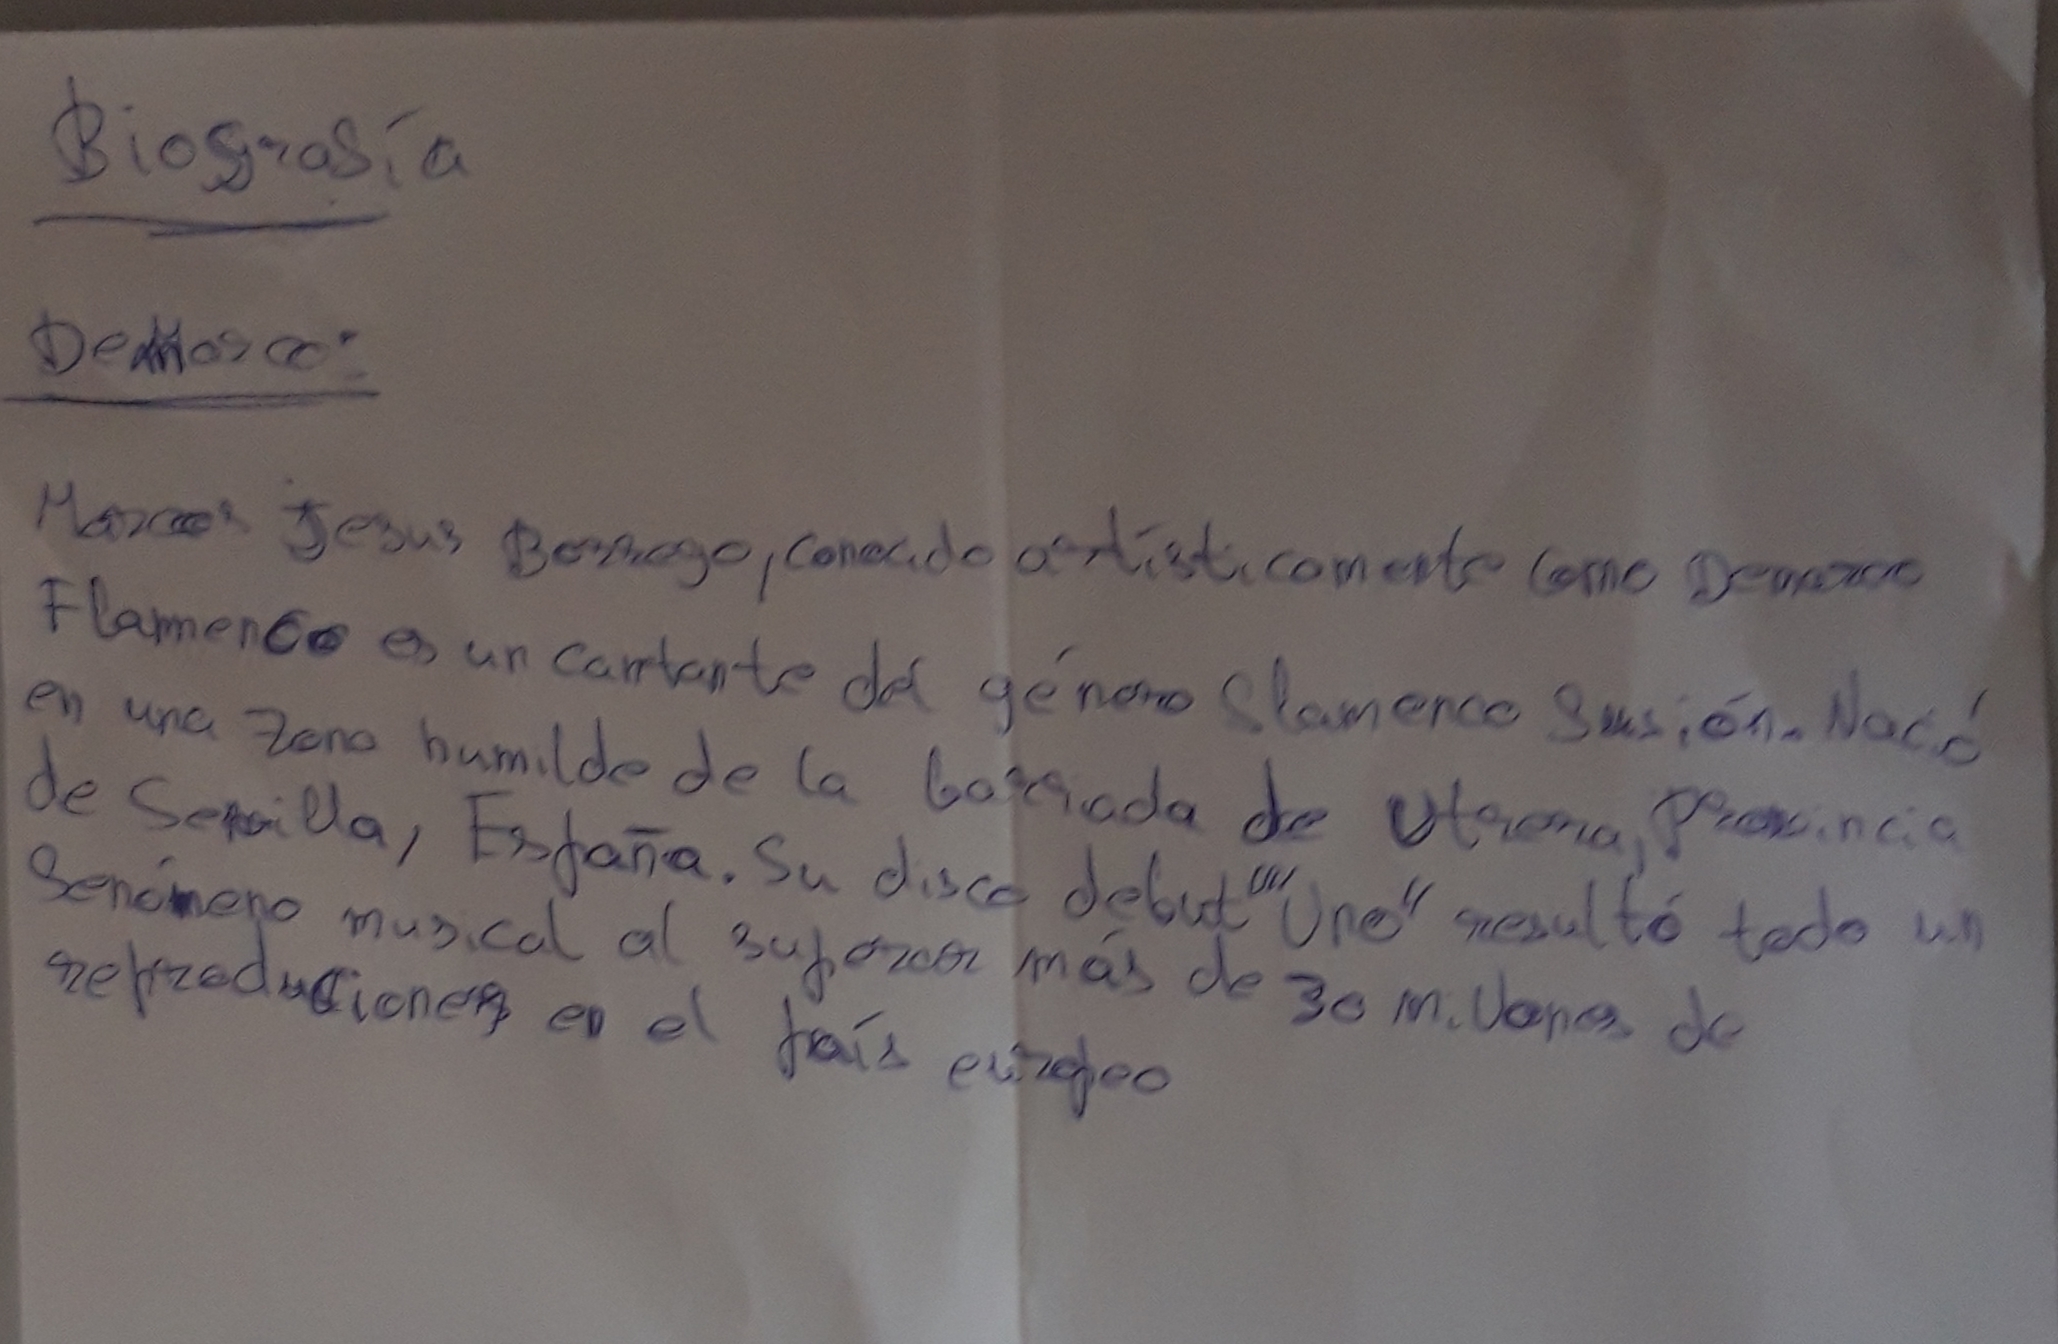 Biografía
Demarco:
Marcos Jesus Borrego, conocido artísticamente como Demarco
Flamenco es un cantante del género flamenco fusión. Nació
en una zona humilde de la barriada de Utrera, Provincia
de Sevilla, España. Su disco debut "Uno" resultó todo un
fenómeno musical al superar más de 30 millones de
reproduciones en el país europeo